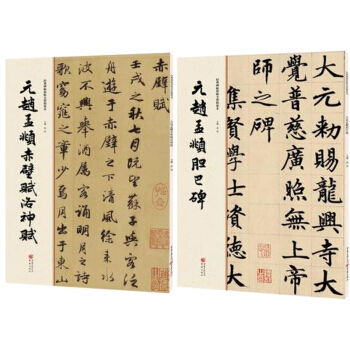 赤壁賦
壬戌之秋七月既望蘇子與客泛
舟遊于赤壁之下清風徐來水
波不興舉酒屬客誦明月之詩
歌窈窕之章少焉月出于東山
元趙孟頫赤壁賦洛神賦
大元勑賜龍興寺大
覺普慈廣照無上帝
師之碑
集賢學士資德大
元趙孟頫胆巴碑